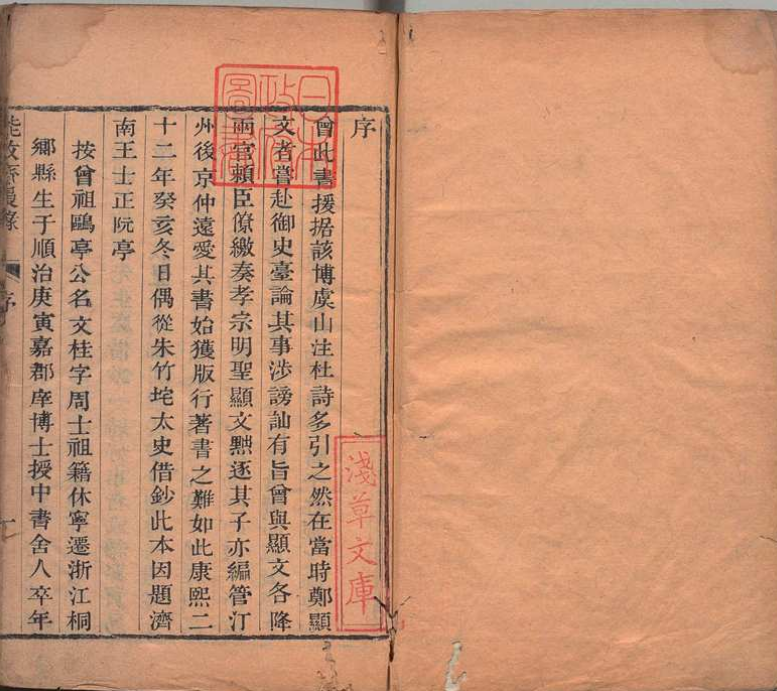 序
曾此書援据該博虞山注杜詩多引之然在當時鄭顯
文者嘗赴御史臺論其事涉謗訕有旨曾與顯文各降
兩官賴臣僚繳奏孝宗明聖顯文黜逐其子亦編管汀
州後京仲遠愛其書始獲版行著書之難如此康熙二
十二年癸亥冬日偶從朱竹垞太史借鈔此本因題濟
南王士正阮亭
按曾祖鷗亭公名文桂字周士祖籍休寧遷浙江桐
鄉縣生于順治庚寅嘉郡庠博士授中書舍人卒年
能改齋漫錄
序
一
日本
政府
圖書
淺草文庫